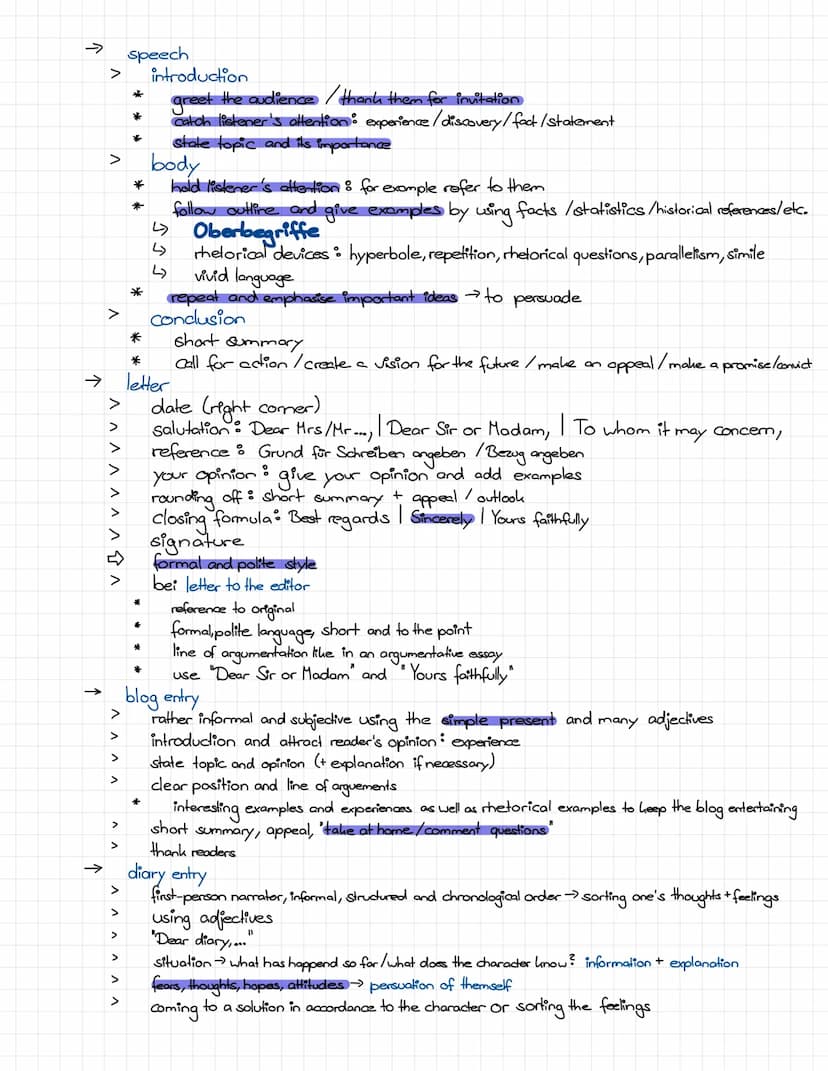 → speech
> introduction
* greet the audience / thank them for invitation
* catch listener's attention: experience/discovery/fact/statement
* state topic and its importance
> body
* hold listener's attention: for example refer to them
* follow outline and give examples by using facts/statistics/historical references/etc.
↳ Oberbegriffe
↳ rhetorical devices: hyperbole, repetition, rhetorical questions, parallelism, simile
↳ vivid language
* repeat and emphasise important ideas → to persuade
> conclusion
* short summary
* call for action/create a vision for the future/make an appeal/make a promise/convict
→ letter
> date (right corner)
> salutation: Dear Mrs/Mr..., | Dear Sir or Madam, | To whom it may concern,
> reference: Grund für Schreiben angeben / Bezug angeben
> your opinion: give your opinion and add examples
> rounding off: short summary + appeal / outlook
> closing formula: Best regards | Sincerely | Yours faithfully
> signature
⇨ formal and polite style
> bei letter to the editor
* reference to original
* formal, polite language, short and to the point
* line of argumentation like in an argumentative essay
* use "Dear Sir or Madam" and "Yours faithfully"
→ blog entry
> rather informal and subjective using the simple present and many adjectives
> introduction and attract reader's opinion: experience
> state topic and opinion (+ explanation if necessary)
> clear position and line of arguements
* interesting examples and experiences as well as rhetorical examples to keep the blog entertaining
> short summary, appeal, "take at home/comment questions"
> thank readers
→ diary entry
> first-person narrator, informal, structured and chronological order → sorting one's thoughts + feelings
> using adjectives
> "Dear diary,..."
> situation → what has happend so far/what does the character know? information + explanation
> fears, thoughts, hopes, attitudes → persuation of themself
> coming to a solution in accordance to the character or sorting the feelings